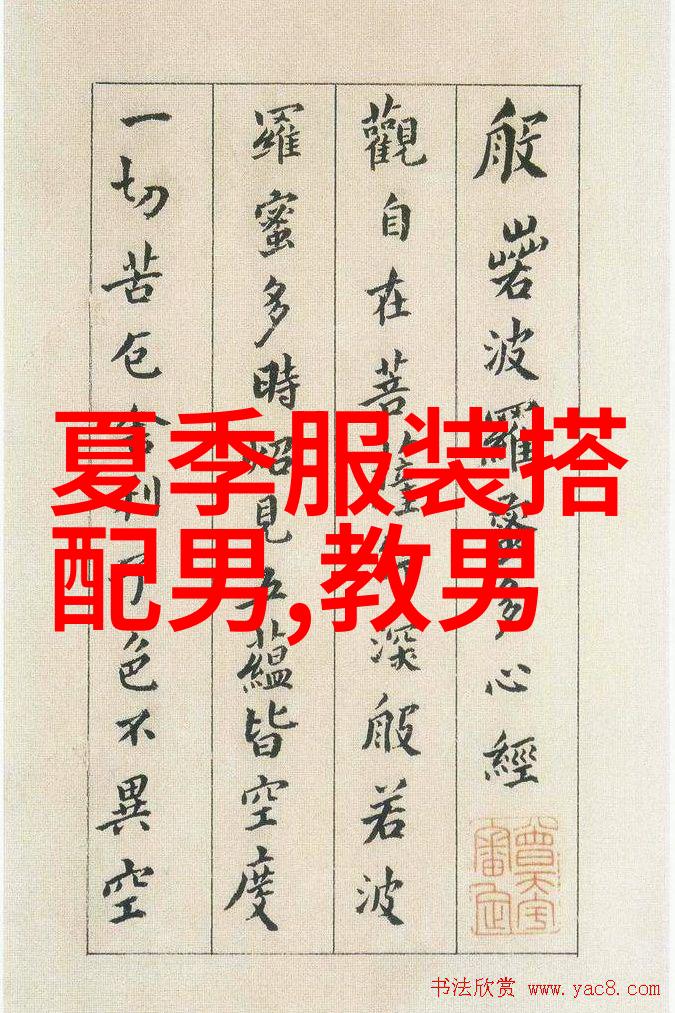 般若波羅蜜多心經
觀自在菩薩深般若波
羅蜜多時照見五蘊皆空度
一切苦厄舍利子色不異空
夏季服装搭
配男,教男
书法欣赏 www.yac8.com